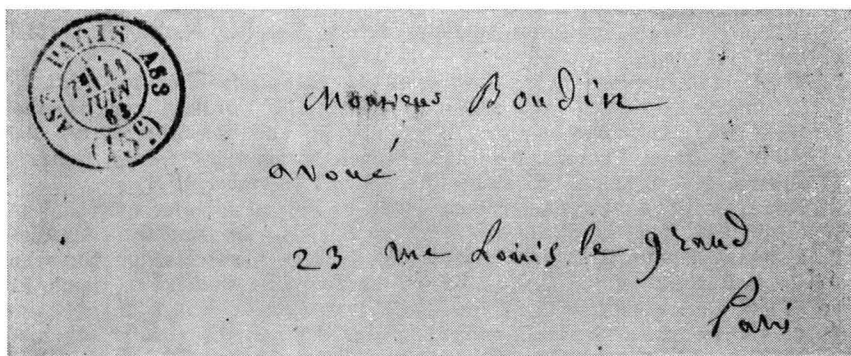 PARIS
ASS ASS
7E 11
JUIN
63
(15c)
Monsieur Boudin
avoué
23 rue Louis le grand
Paris